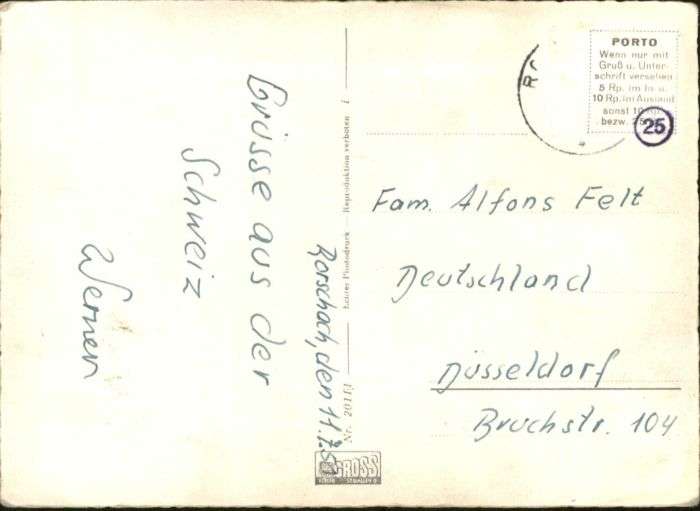 Rorschach, den 11.7.5
Grüsse aus der
Schweiz
Werner
Nr. 201
Echtes Photodruck — Reproduktion verboten
GROSS
PORTO
Wenn nur mit
Gruß u. Unter-
schrift versehen
5 Rp. im In u.
10 Rp. im Ausland
sonst 10 Rp.
bezw. 25
25
Fam. Alfons Felt
Deutschland
Düsseldorf
Bruchstr. 104